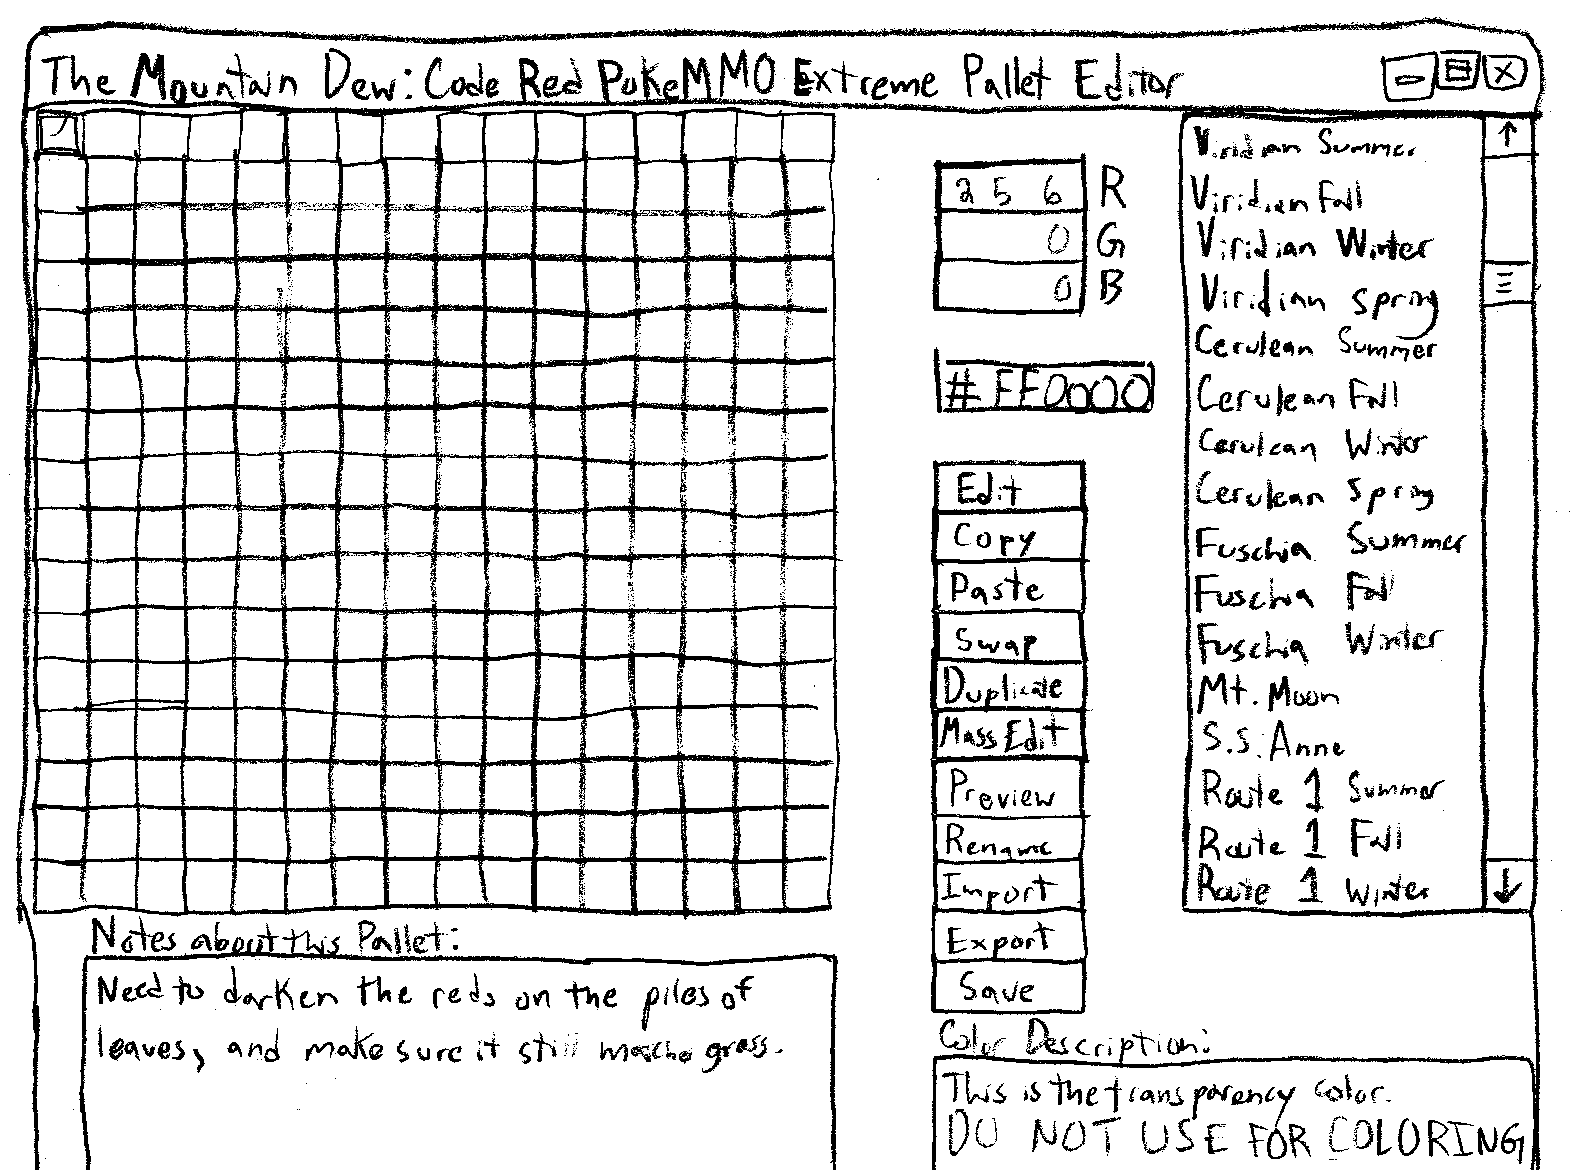 The Mountain Dew: Code Red PokeMMO Extreme Pallet Editor
256 R
0 G
0 B
#FF0000
Edit
Copy
Paste
Swap
Duplicate
Mass Edit
Preview
Rename
Import
Export
Save
Viridian Summer
Viridian Fall
Viridian Winter
Viridian Spring
Cerulean Summer
Cerulean Fall
Cerulean Winter
Cerulean Spring
Fuschia Summer
Fuschia Fall
Fuschia Winter
Mt. Moon
S.S. Anne
Route 1 Summer
Route 1 Fall
Route 1 Winter
Notes about this Pallet:
Need to darken the reds on the piles of
leaves, and make sure it still grass.
Color Description:
This is the transparency color.
DO NOT USE FOR COLORING